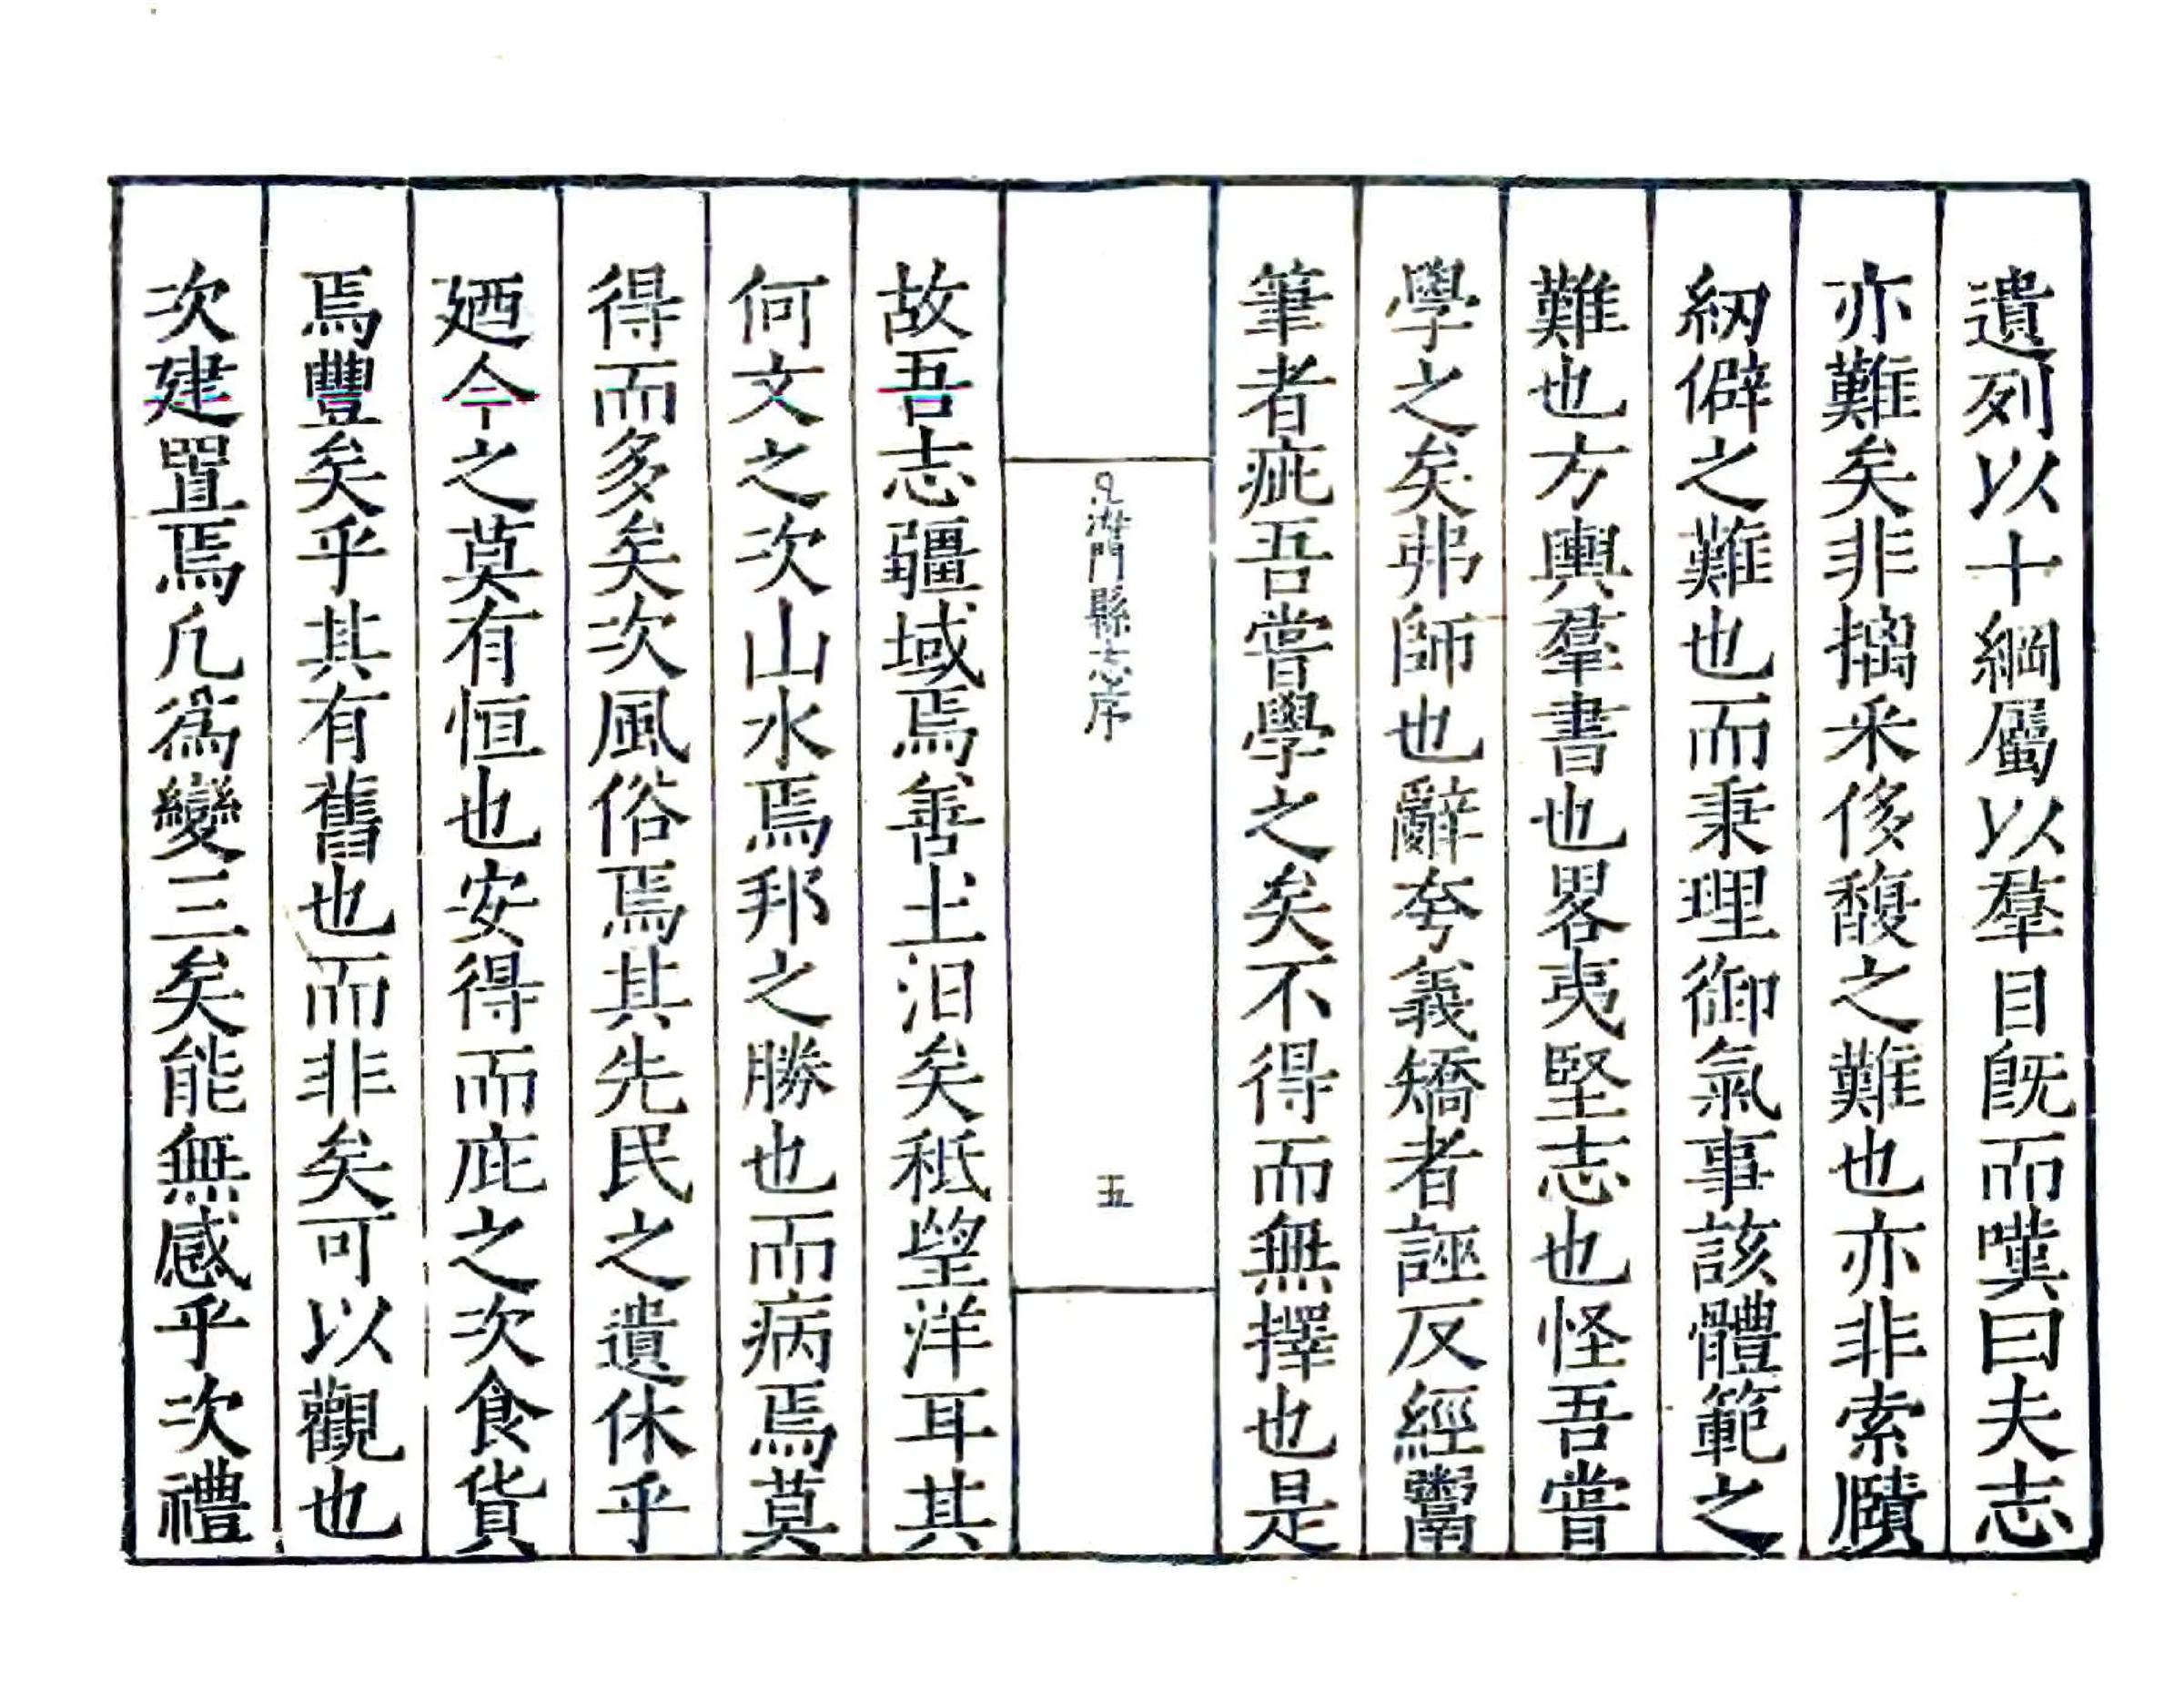 遺列以十綱屬以羣目旣而嘆曰夫志
亦難矣非摛釆侈馥之難也亦非索賾
紉僻之難也而秉理御氣事該體範之
難也方輿羣書也畧夷堅志也怪吾嘗
學之矣弗師也辭夸義矯者誣反經鬻
筆者疵吾嘗學之矣不得而無擇也是
海門縣志序
五
故吾志疆域焉善土汨矣秪朢洋耳其
何文之次山水焉邦之勝也而病焉莫
得而多矣次風俗焉其先民之遺休乎
廼今之莫有恒也安得而庇之次食貨
焉豐矣乎其有舊也而非矣可以觀也
次建置焉凢爲變三矣能無感乎次禮